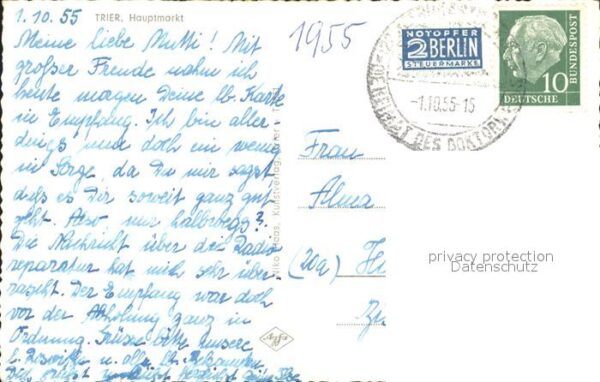 1.10.55
TRIER, Hauptmarkt
Meine liebe Mutti! Mit
großer Freude nahm ich
heute morgen Deine lb. Karte
in Empfang. Ich bin aller-
dings nun doch ein wenig
in Sorge, da Du mir sagst
daß es Dir soweit ganz gut
geht. Also nur halbwegs?
Die Nachricht über die Radio
reparatur hat mich sehr über-
rascht. Der Empfang war doch
vor der Abholung ganz in
Ordnung. Grüße bitte unsere
u. alle lb. Bekannten
1955
NOTOPFER
2 BERLIN
STEUERMARKE
-1.10.55-15
DES DOKTOR
10
DEUTSCHE
BUNDESPOST
Kunstverlag, Trier
Frau
Alma
(20a)
Agfa
privacy protection
Datenschutz